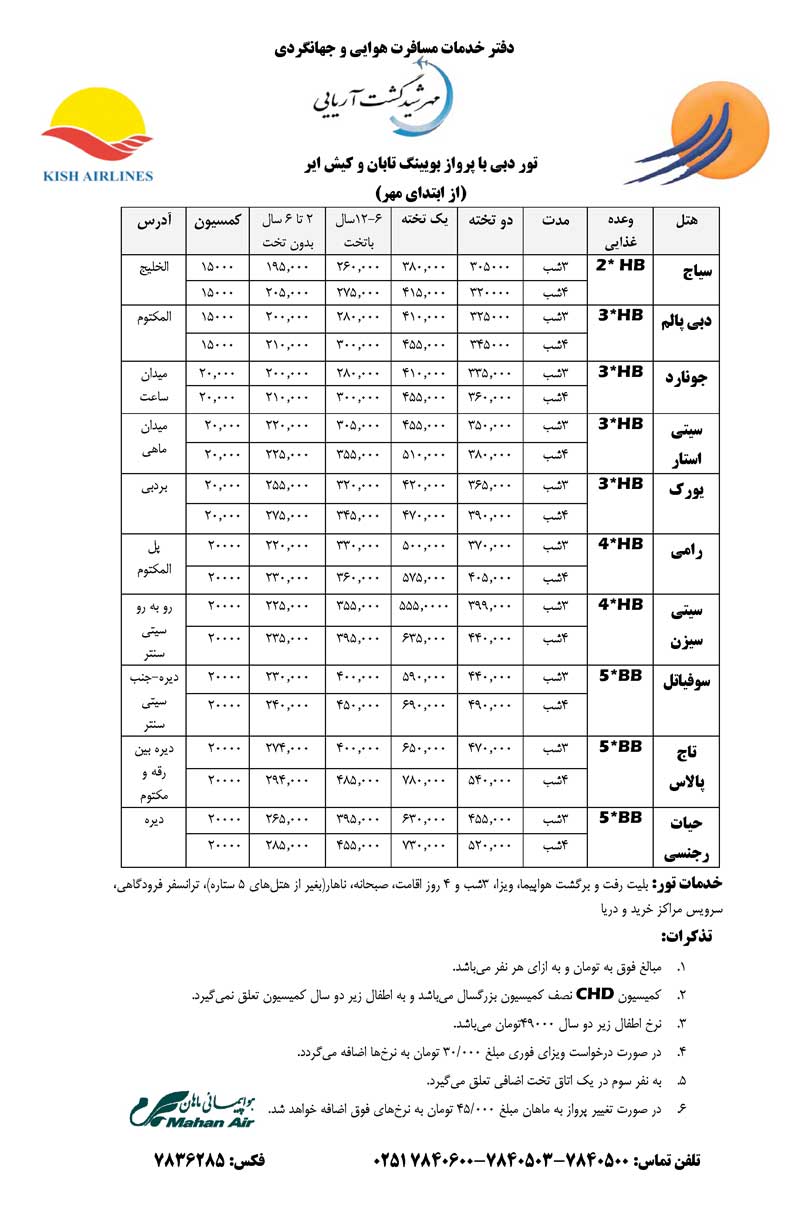 دفتر خدمات مسافرت هوایی و جهانگردی
مهرشید گشت آریایی
KISH AIRLINES
تور دبی با پرواز بویینگ تابان و کیش ایر
(از ابتدای مهر)
هتل وعده غذایی مدت دو تخته یک تخته ۶-۱۲سال باتخت ۲ تا ۶ سال بدون تخت کمسیون آدرس
سیاج 2* HB ۳شب ۳۰۵۰۰۰ ۳۸۰,۰۰۰ ۲۶۰,۰۰۰ ۱۹۵,۰۰۰ ۱۵۰۰۰ الخلیج
۴شب ۳۲۰۰۰۰ ۴۱۵,۰۰۰ ۲۷۵,۰۰۰ ۲۰۵,۰۰۰ ۱۵۰۰۰
دبی پالم 3*HB ۳شب ۳۲۵۰۰۰ ۴۱۰,۰۰۰ ۲۸۰,۰۰۰ ۲۰۰,۰۰۰ ۱۵۰۰۰ المکتوم
۴شب ۳۴۵۰۰۰ ۴۵۵,۰۰۰ ۳۰۰,۰۰۰ ۲۱۰,۰۰۰ ۱۵۰۰۰
جونارد 3*HB ۳شب ۳۳۵,۰۰۰ ۴۱۰,۰۰۰ ۲۸۰,۰۰۰ ۲۰۰,۰۰۰ ۲۰,۰۰۰ میدان
۴شب ۳۶۰,۰۰۰ ۴۵۵,۰۰۰ ۳۰۰,۰۰۰ ۲۱۰,۰۰۰ ۲۰,۰۰۰ ساعت
سیتی 3*HB ۳شب ۳۵۰,۰۰۰ ۴۵۵,۰۰۰ ۳۰۵,۰۰۰ ۲۲۰,۰۰۰ ۲۰,۰۰۰ میدان
استار ۴شب ۳۸۰,۰۰۰ ۵۱۰,۰۰۰ ۳۵۵,۰۰۰ ۲۲۵,۰۰۰ ۲۰,۰۰۰ ماهی
یورک 3*HB ۳شب ۳۶۵,۰۰۰ ۴۲۰,۰۰۰ ۳۲۰,۰۰۰ ۲۵۵,۰۰۰ ۲۰,۰۰۰ بردبی
۴شب ۳۹۰,۰۰۰ ۴۷۰,۰۰۰ ۳۴۵,۰۰۰ ۲۷۵,۰۰۰ ۲۰,۰۰۰
رامی 4*HB ۳شب ۳۷۰,۰۰۰ ۵۰۰,۰۰۰ ۳۳۰,۰۰۰ ۲۲۰,۰۰۰ ۲۰۰۰۰ پل
۴شب ۴۰۵,۰۰۰ ۵۷۵,۰۰۰ ۳۶۰,۰۰۰ ۲۳۰,۰۰۰ ۲۰۰۰۰ المکتوم
سیتی 4*HB ۳شب ۳۹۹,۰۰۰ ۵۵۵,۰۰۰۰ ۳۵۵,۰۰۰ ۲۲۵,۰۰۰ ۲۰۰۰۰ رو به رو
سیزن ۴شب ۴۴۰,۰۰۰ ۶۳۵,۰۰۰ ۳۹۵,۰۰۰ ۲۳۵,۰۰۰ ۲۰۰۰۰ سیتی سنتر
سوفیاتل 5*BB ۳شب ۴۴۰,۰۰۰ ۵۹۰,۰۰۰ ۴۰۰,۰۰۰ ۲۳۰,۰۰۰ ۲۰۰۰۰ دیره-جنب
۴شب ۴۹۰,۰۰۰ ۶۹۰,۰۰۰ ۴۵۰,۰۰۰ ۲۴۰,۰۰۰ ۲۰۰۰۰ سیتی سنتر
تاج 5*BB ۳شب ۴۷۰,۰۰۰ ۶۵۰,۰۰۰ ۴۰۰,۰۰۰ ۲۷۴,۰۰۰ ۲۰۰۰۰ دیره بین
پالاس ۴شب ۵۴۰,۰۰۰ ۷۸۰,۰۰۰ ۴۸۵,۰۰۰ ۲۹۴,۰۰۰ ۲۰۰۰۰ رقه و مکتوم
حیات 5*BB ۳شب ۴۵۵,۰۰۰ ۶۳۰,۰۰۰ ۳۹۵,۰۰۰ ۲۶۵,۰۰۰ ۲۰۰۰۰ دیره
رجنسی ۴شب ۵۲۰,۰۰۰ ۷۳۰,۰۰۰ ۴۵۵,۰۰۰ ۲۸۵,۰۰۰ ۲۰۰۰۰
خدمات تور: بلیت رفت و برگشت هواپیما، ویزا، ۳شب و ۴ روز اقامت، صبحانه، ناهار(بغیر از هتل‌های ۵ ستاره)، ترانسفر فرودگاهی،
سرویس مراکز خرید و دریا
تذکرات:
۱. مبالغ فوق به تومان و به ازای هر نفر می‌باشد.
۲. کمیسیون CHD نصف کمیسیون بزرگسال می‌باشد و به اطفال زیر دو سال کمیسیون تعلق نمی‌گیرد.
۳. نرخ اطفال زیر دو سال ۴۹۰۰۰تومان می‌باشد.
۴. در صورت درخواست ویزای فوری مبلغ ۳۰/۰۰۰ تومان به نرخ‌ها اضافه می‌گردد.
۵. به نفر سوم در یک اتاق تخت اضافی تعلق می‌گیرد.
۶. در صورت تغییر پرواز به ماهان مبلغ ۴۵/۰۰۰ تومان به نرخ‌های فوق اضافه خواهد شد.
هواپیمائی ماهان
Mahan Air
تلفن تماس: ۷۸۴۰۵۰۰-۷۸۴۰۵۰۳-۷۸۴۰۶۰۰ ۰۲۵۱ فکس: ۷۸۳۶۲۸۵